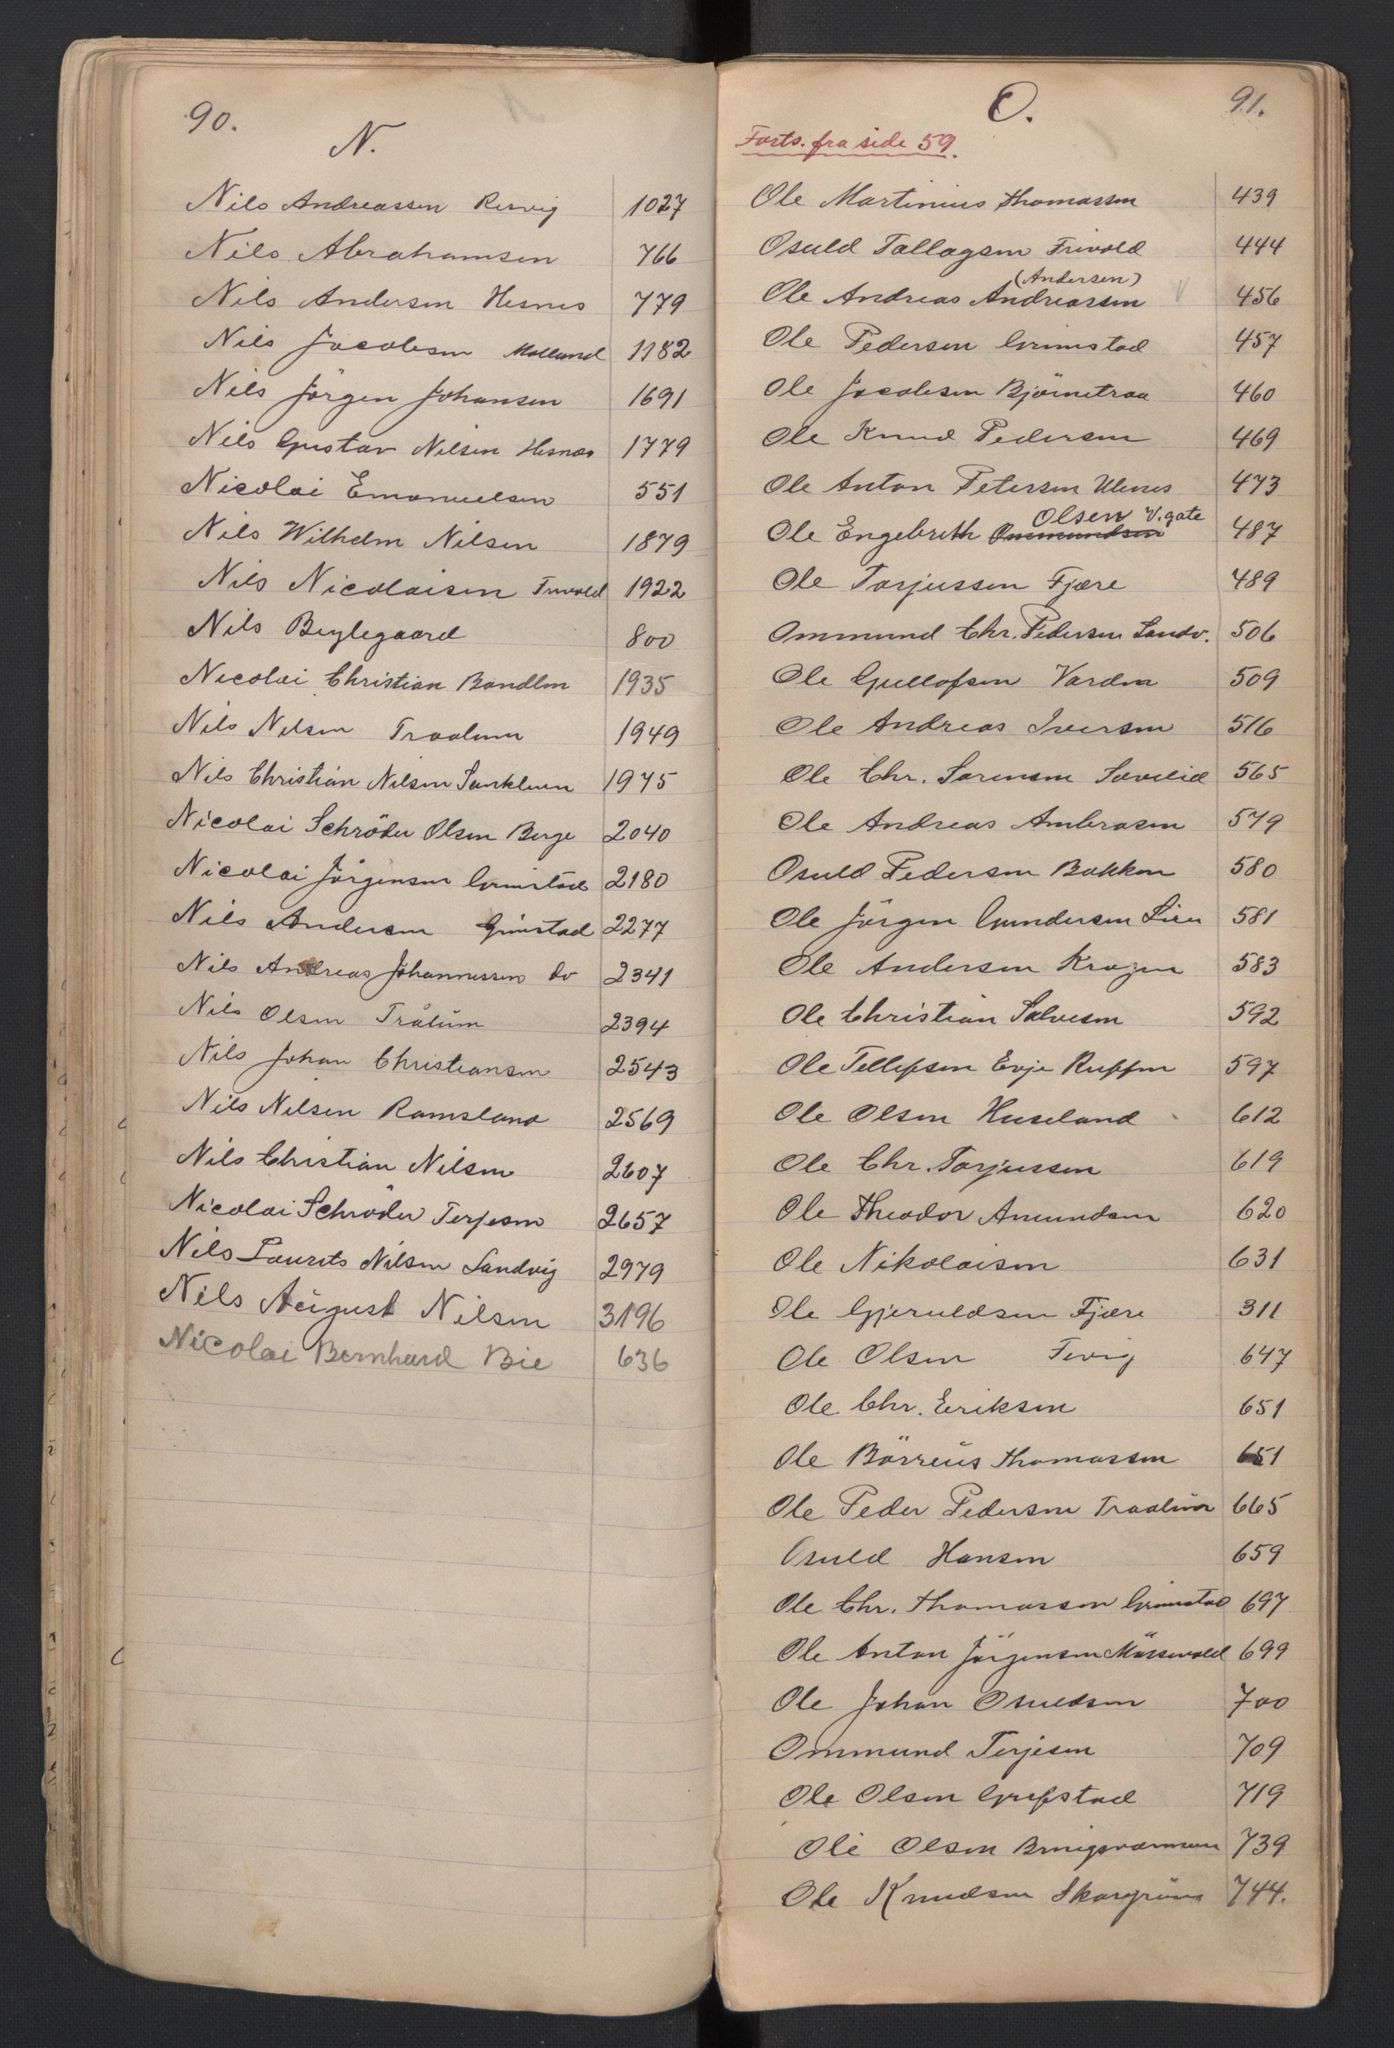 90.
N.
Nils Andreassen Resvig 1027
Nils Abrahamsen 766
Nils Andersen Hesnes 779
Nils Jacobsen Molland 1182
Nils Jörgen Johansen 1691
Nils Gustav Nilsen Hesnæs 1779
Nicolai Emanuelsen 551
Nils Wilhelm Nilsen 1879
Nils Nicolaisen Frivold 1922
Nils Beylegaard 800
Nicolai Christian Bandlen 1935
Nils Nilsen Traalum 1949
Nils Christian Nilsen 1975
Nicolai Schröder Olsen Berge 2040
Nicolai Jörgensen Grimstad 2180
Nils Andersen Grimstad 2277
Nils Andreas Johannessen do 2341
Nils Olsen Trålum 2394
Nils Johan Christiansen 2543
Nils Nilsen Ramsland 2569
Nils Christian Nilsen 2607
Nicolai Schröder Terjesen 2657
Nils Laurits Nilsen Sandvig 2979
Nils August Nilsen 3196
Nicolai Bernhard Bie 636
91.
O.
Forts. fra side 59.
Ole Martinius Thomassen 439
Osuld Tallagsen Frivold 444
(Andersen)
Ole Andreas Andreassen 456
Ole Pedersen Grimstad 457
Ole Jacobsen Bjørnetraa 460
Ole Knud Pedersen 469
Ole Anton Petersen Ulenes 473
Olsen V. gate
Ole Engebreth Ommundsen 487
Ole Torjussen Fjære 489
Ommund Chr. Pedersen Sandv. 506
Ole Gullofsen Varden 509
Ole Andreas Iversen 516
Ole Chr. Sørensen Sævelid 565
Ole Andreas Ambrosen 579
Osuld Pedersen Bakken 580
Ole Jörgen Gundersen Lien 581
Ole Andersen Kragen 583
Ole Christian Salvesen 592
Ole Tellefsen Evje Ruffen 597
Ole Olsen Huseland 612
Ole Chr. Torjussen 619
Ole Theodor Amundsen 620
Ole Nikolaisen 631
Ole Gjeruldsen Fjære 311
Ole Olsen Fevig 647
Ole Chr. Eriksen 651
Ole Börreus Thomassen 651
Ole Peder Pedersen Traalum 665
Osuld Hansen 659
Ole Chr. Thomassen Grimstad 697
Ole Anton Jörgensen Mossevold 699
Ole Johan Osuldsen 700
Ommund Terjesen 709
Ole Olsen Grefstad 719
Ole Olsen 739
Ole Knudsen Skargrøm 744.